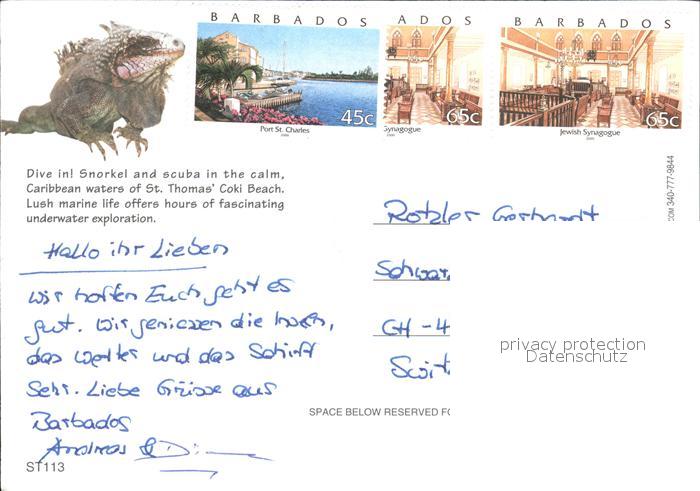 BARBADOS
ADOS
BARBADOS
45c
65c
65c
Port St. Charles
Synagogue
Jewish Synagogue
Dive in! Snorkel and scuba in the calm,
Caribbean waters of St. Thomas' Coki Beach.
Lush marine life offers hours of fascinating
underwater exploration.
340-777-9844
Hallo ihr Lieben
wir hoffen Euch geht es
gut. Wir geniessen die Inseln,
das Wetter und das Schiff
Sehr. Liebe Grüsse aus
Barbados
Andreas &
ST113
Rotzler
Schwar
CH-4
privacy protection
Datenschutz
SPACE BELOW RESERVED FO